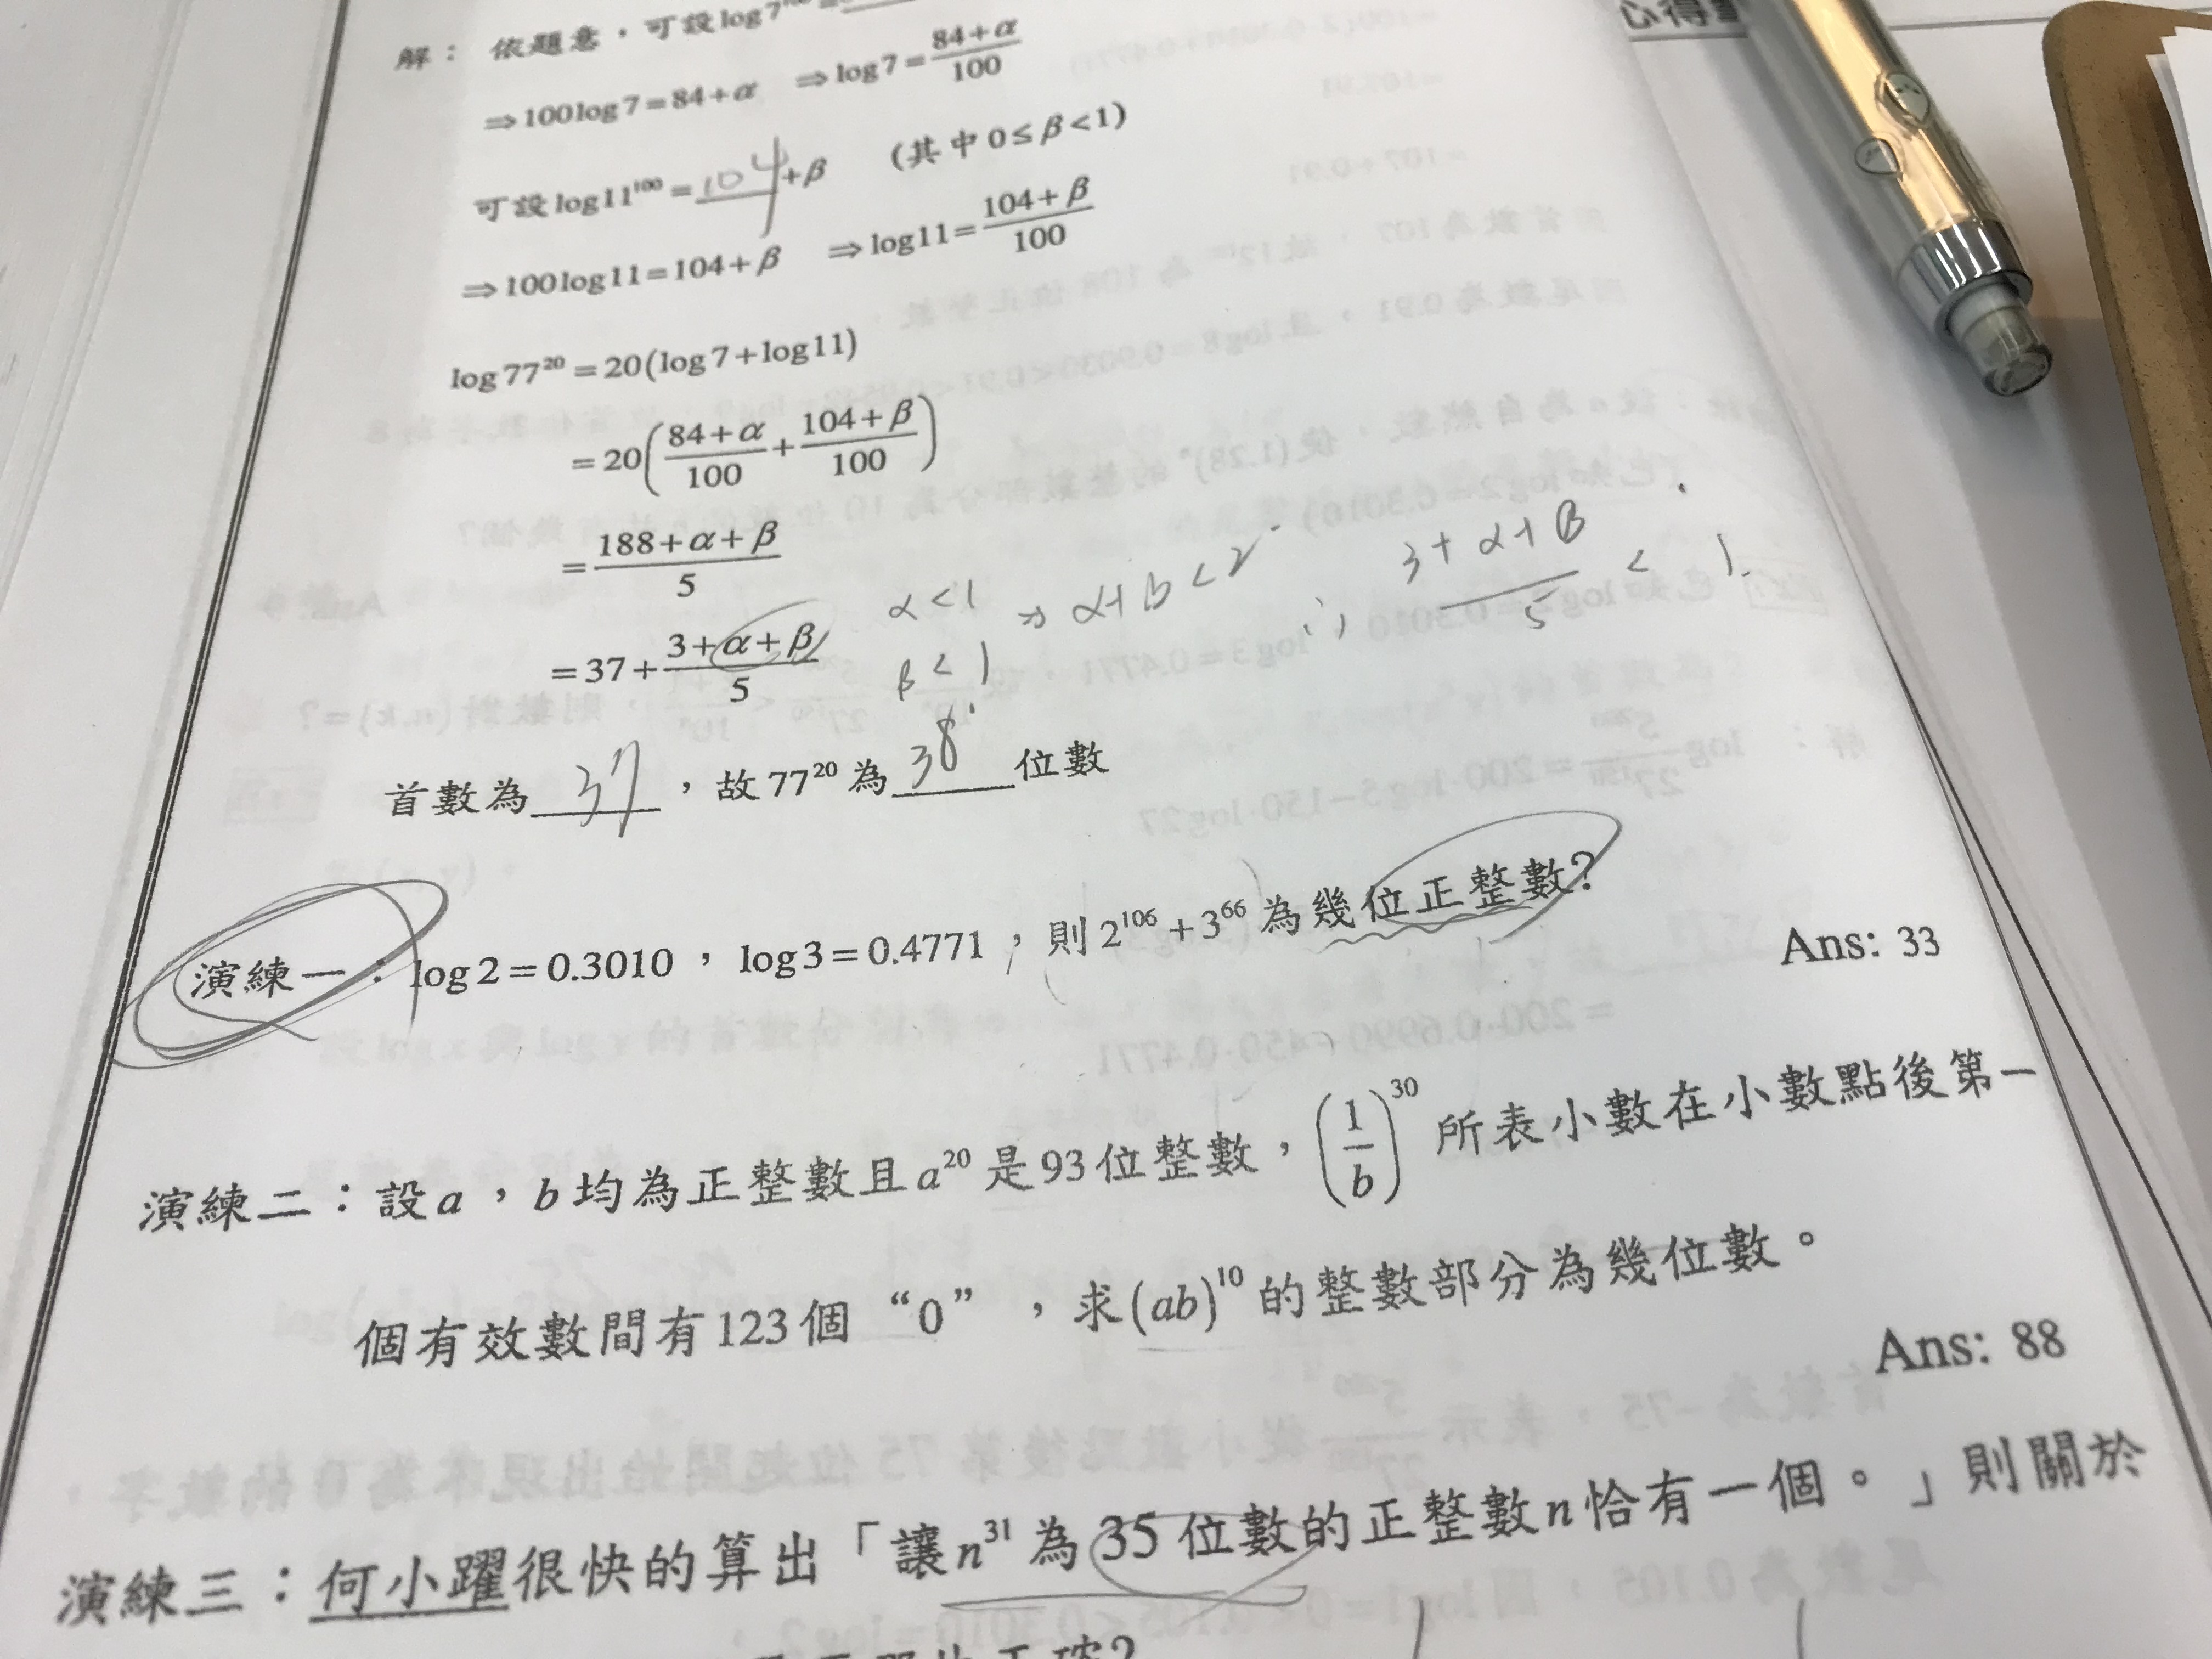 心得
解： 依題意，可設log7¹⁰⁰=
⇒100log7=84+α ⇒log7=\frac{84+α}{100}
可設log11¹⁰⁰=104+β (其中0≤β<1)
⇒100log11=104+β ⇒log11=\frac{104+β}{100}
log77²⁰=20(log7+log11)
=20(\frac{84+α}{100}+\frac{104+β}{100})
=\frac{188+α+β}{5}
=37+\frac{3+α+β}{5}
α<1
β<1
⇒ α+β<2
∴ \frac{3+α+β}{5} < 1.
首數為37，故77²⁰為38位數
演練一：log2=0.3010，log3=0.4771，則2¹⁰⁶+3⁶⁶為幾位正整數?
Ans: 33
演練二：設a，b均為正整數且a²⁰是93位整數，(\frac{1}{b})³⁰所表小數在小數點後第一
個有效數間有123個“0”，求(ab)¹⁰的整數部分為幾位數。
Ans: 88
演練三：何小躍很快的算出「讓n³¹為35位數的正整數n恰有一個。」則關於